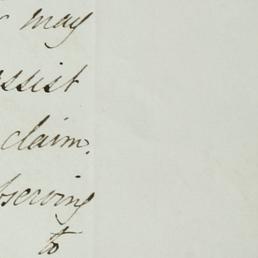 may
assist
claim.
observing
to